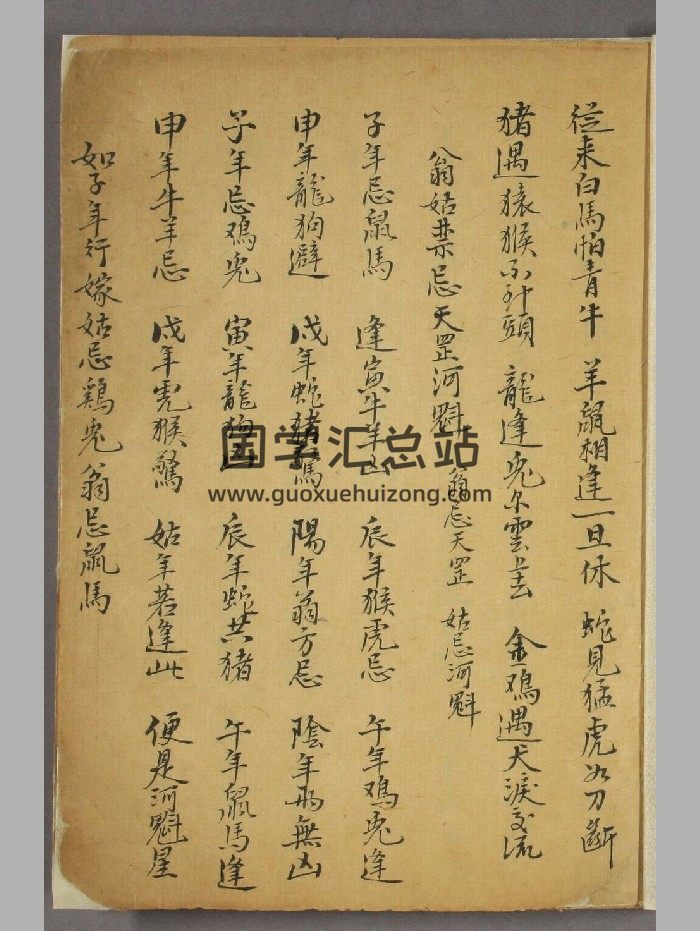 從来白馬怕青牛 羊鼠相逢一旦休 蛇見猛虎如刀斷
猪遇猿猴不到頭 龍逢兎尔雲去 金鸡遇犬淚交流
翁姑禁忌天罡河魁 翁忌天罡 姑忌河魁
子年忌鼠馬 逢寅牛羊凶 辰年猴虎忌 午年鸡兎逢
申年龍狗避 戌年蛇猪 陽年翁方忌 陰年两無凶
子年忌鸡兎 寅年龍狗 辰年蛇共猪 午年鼠馬逢
申年牛羊忌 戌年虎猴驚 姑年若逢此 便是河魁星
如子年行嫁姑忌鷄兎翁忌鼠馬
国学汇总站
www.guoxuehuizong.com